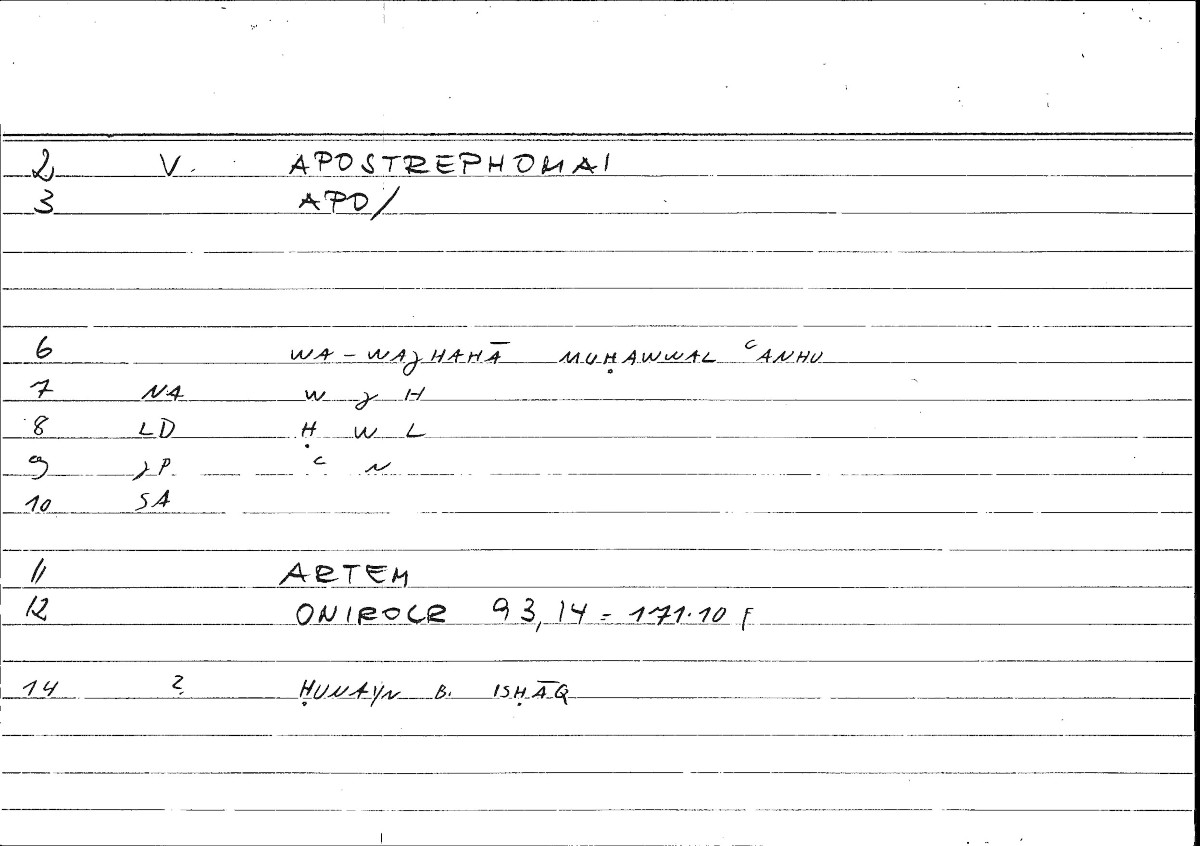 2 V. APOSTREPHOMAI
3 APO/
6 WA-WAJHAHĀ MUḤAWWAL ʿANHU
7 NA W J H
8 LD Ḥ W L
9 JP ʿ N
10 SA
11 ARTEM
12 ONIROCR 93,14 = 171.10 f
14 ? ḤUNAYN B. ISḤĀQ